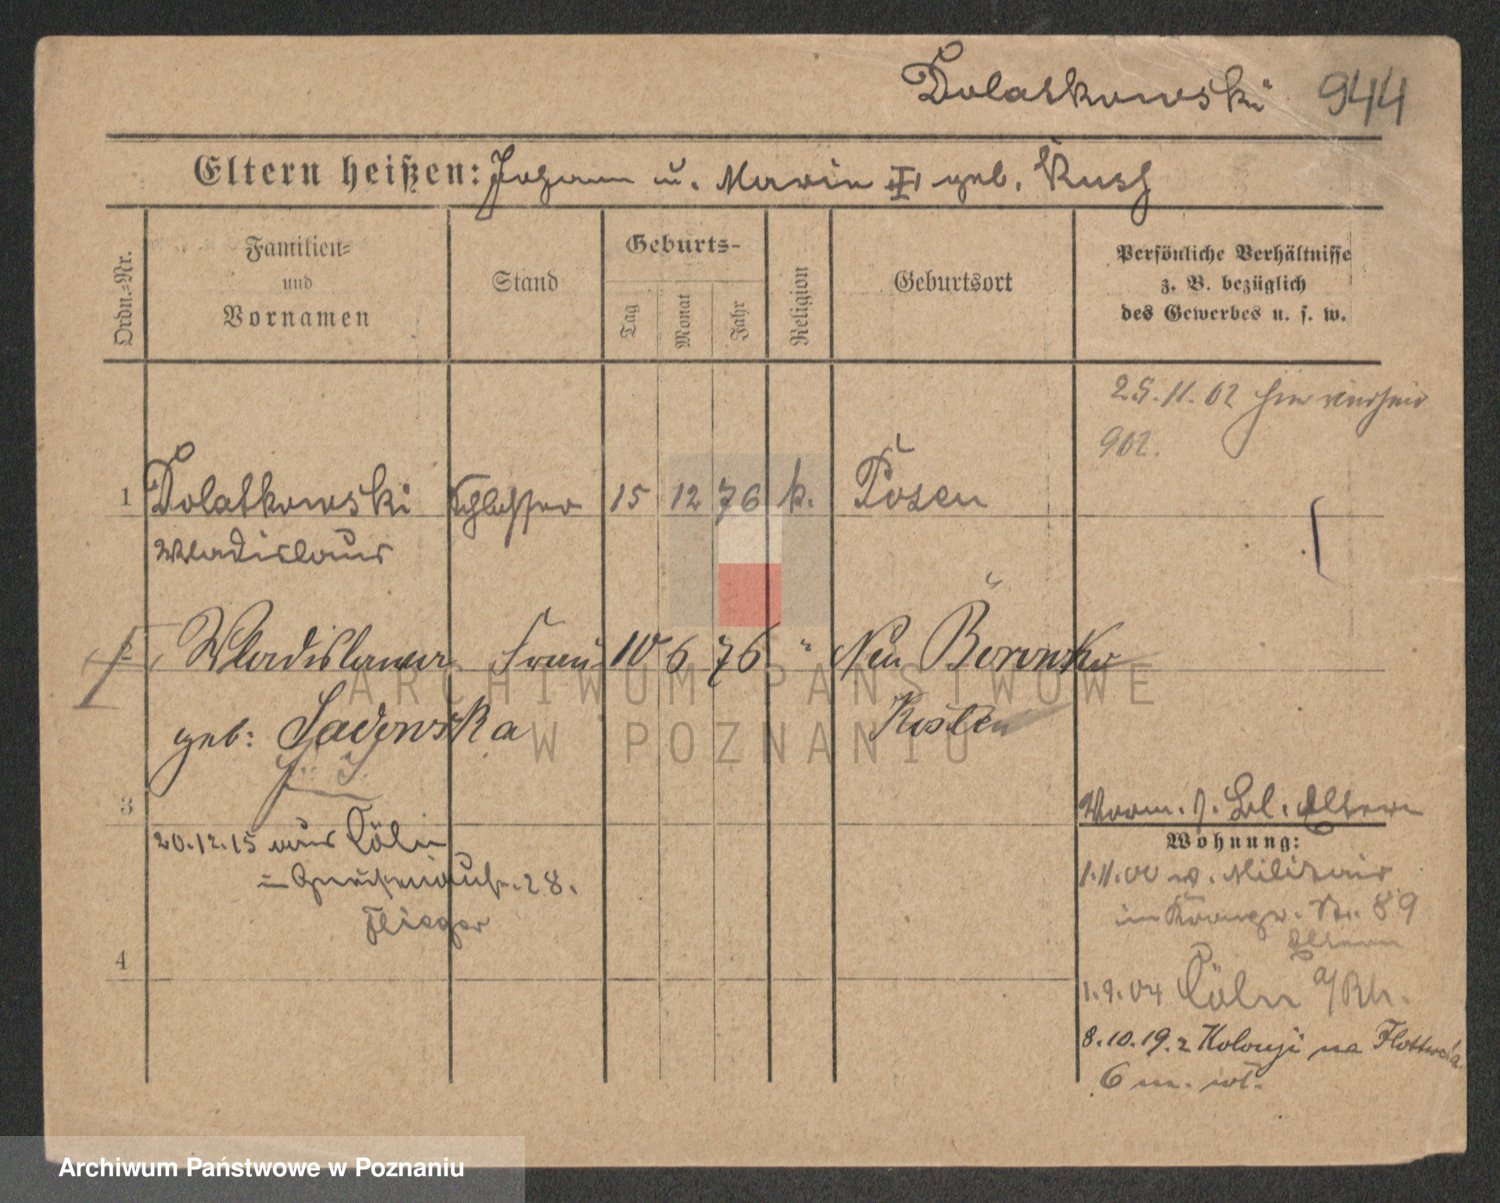 Dolatkowski 944
Eltern heißen: Johann u. Maria geb. Rusch
Ordn.-Nr.
Familien-
und
Vornamen
Stand
Geburts-
Tag
Monat
Jahr
Religion
Geburtsort
Persönliche Verhältnisse
z. B. bezüglich
des Gewerbes u. s. w.
25.11.02 hier verheir
902.
1 Dolatkowski Schlosser 15 12 76 k. Posen
Wladislaus
2 Wladislawa Frau 10 6 76 " Neu
geb: Sadowska Kosten
3
20.12.15 aus Cöln
28.
Flieger
4
Eltern
Wohnung:
1.11.00 z. Militair
im Kronprz. Str. 89
Eltern
1.9.04 Cöln a/Rh.
8.10.19. z Kolonji na
6 m. wł.
ARCHIWUM PAŃSTWOWE
W POZNANIU
Archiwum Państwowe w Poznaniu